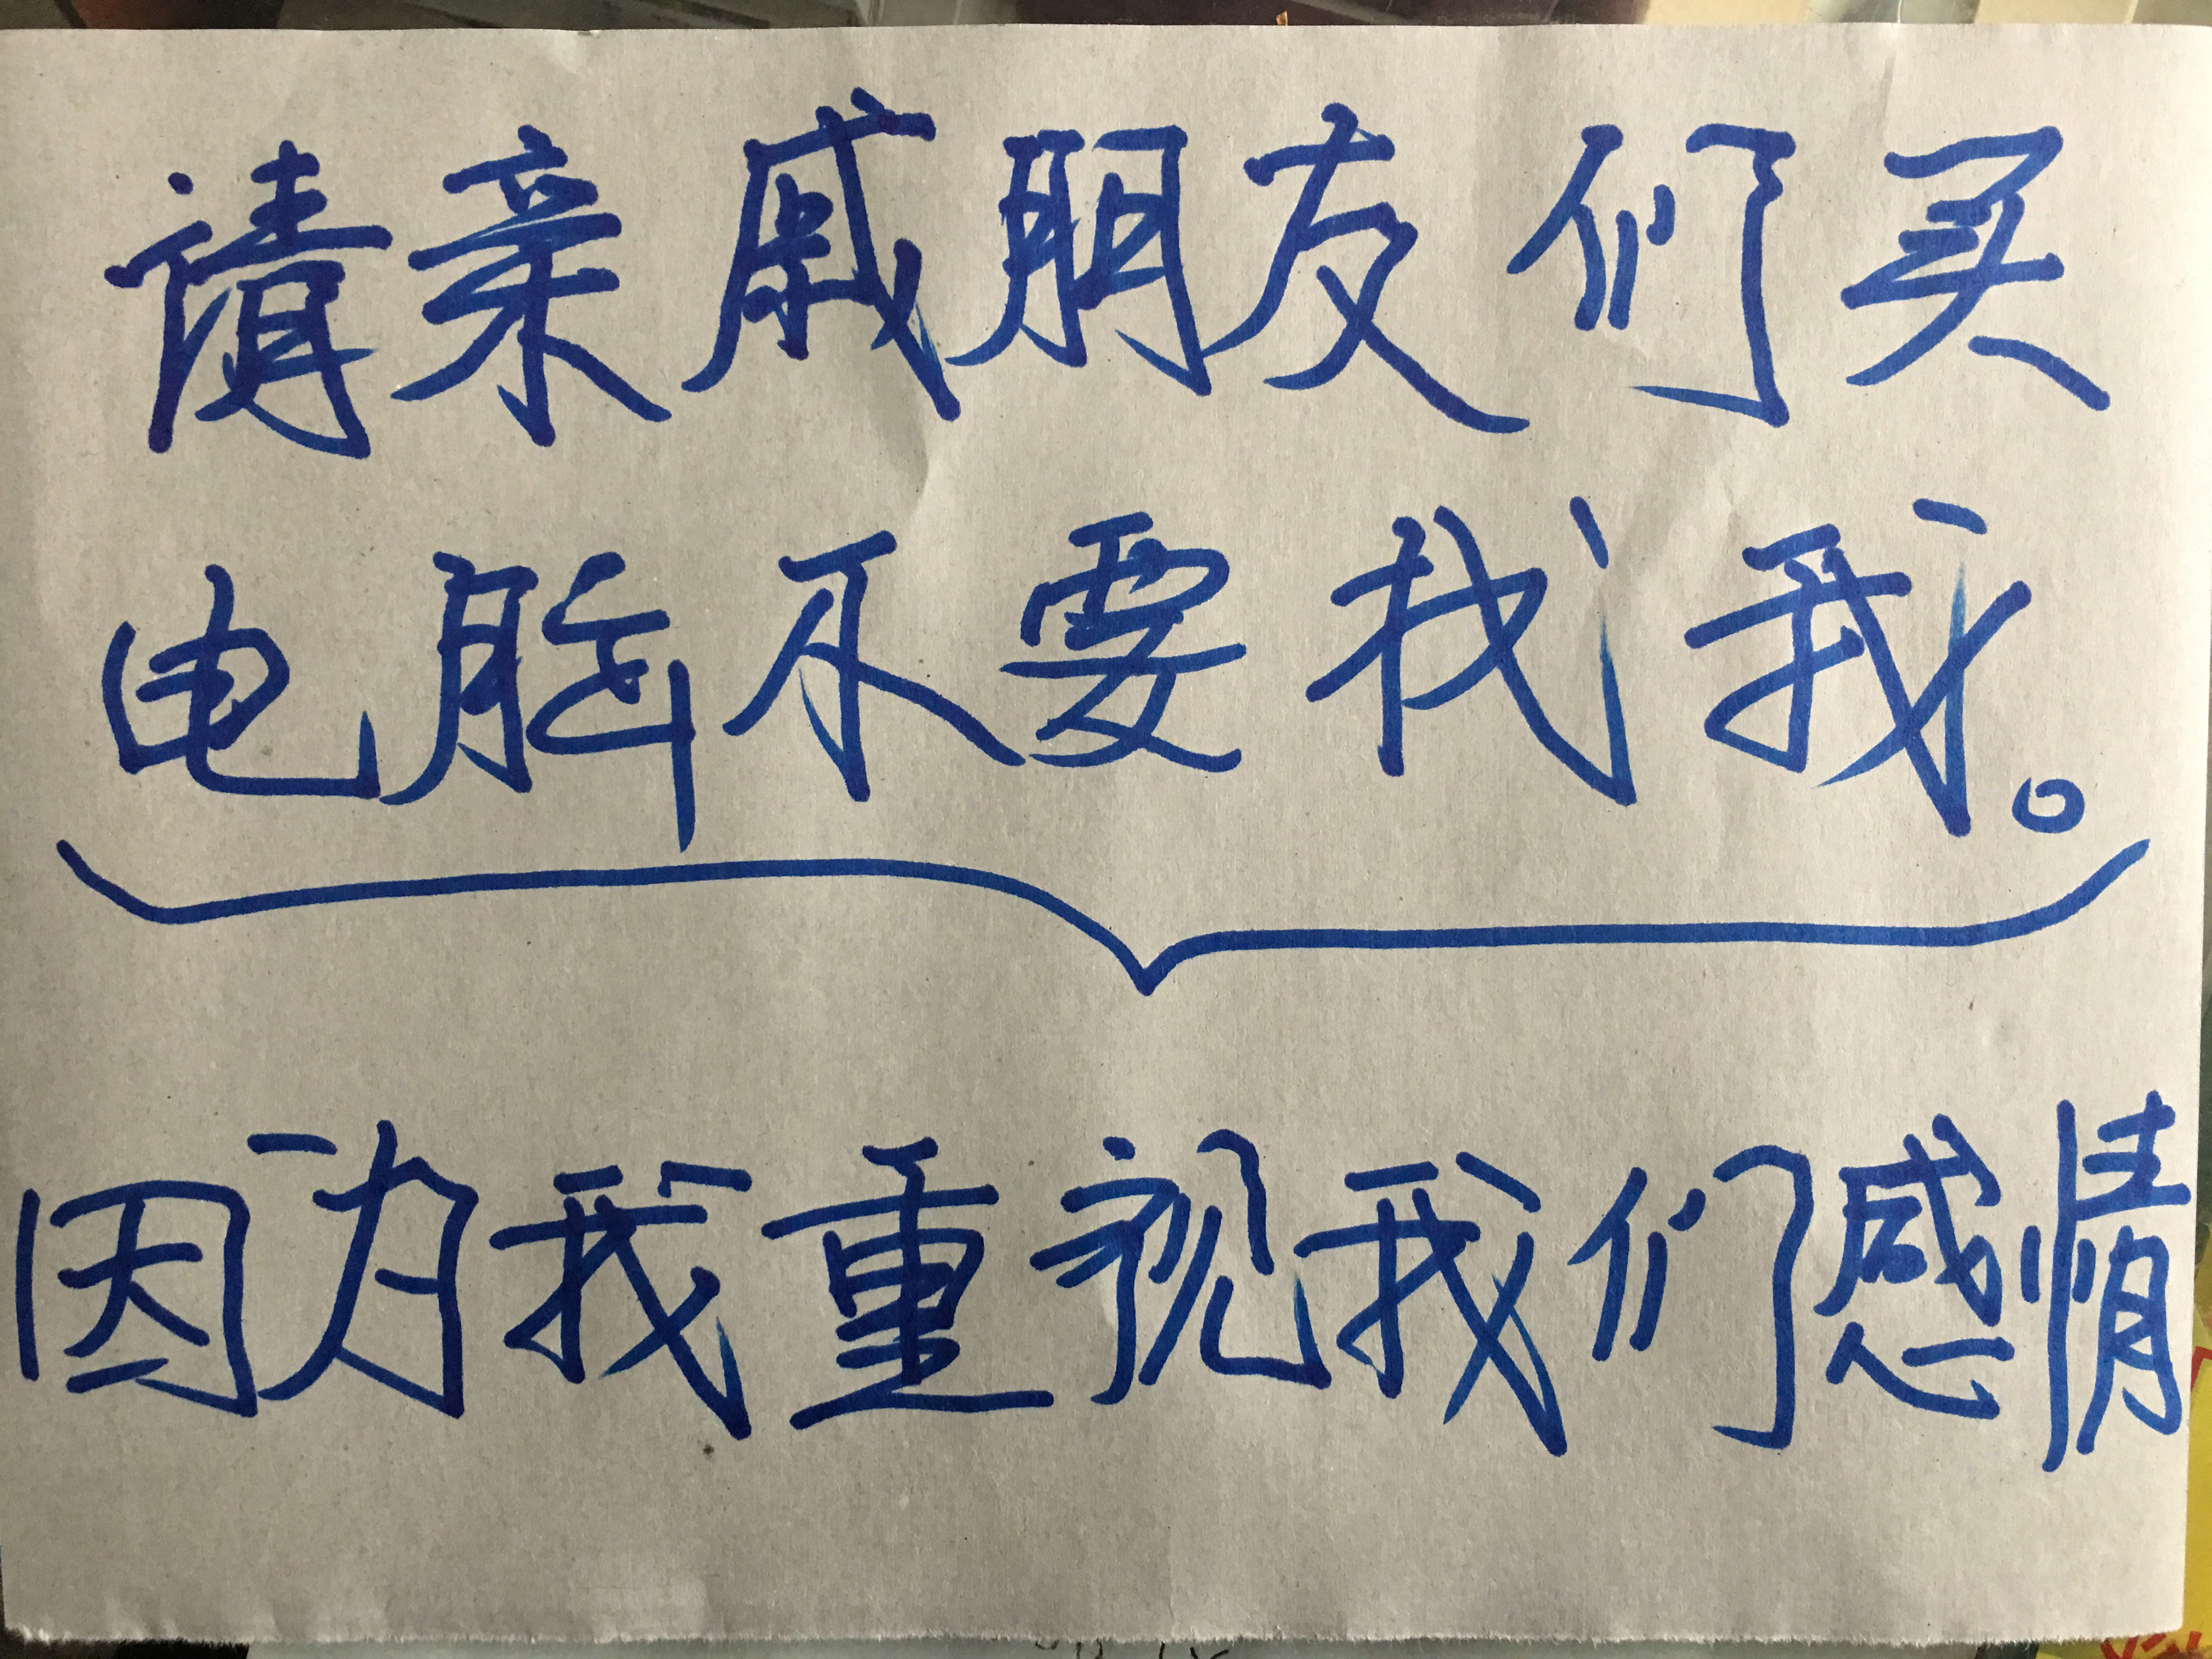 请亲戚朋友们买
电脑不要找我。
因为我重视我们感情